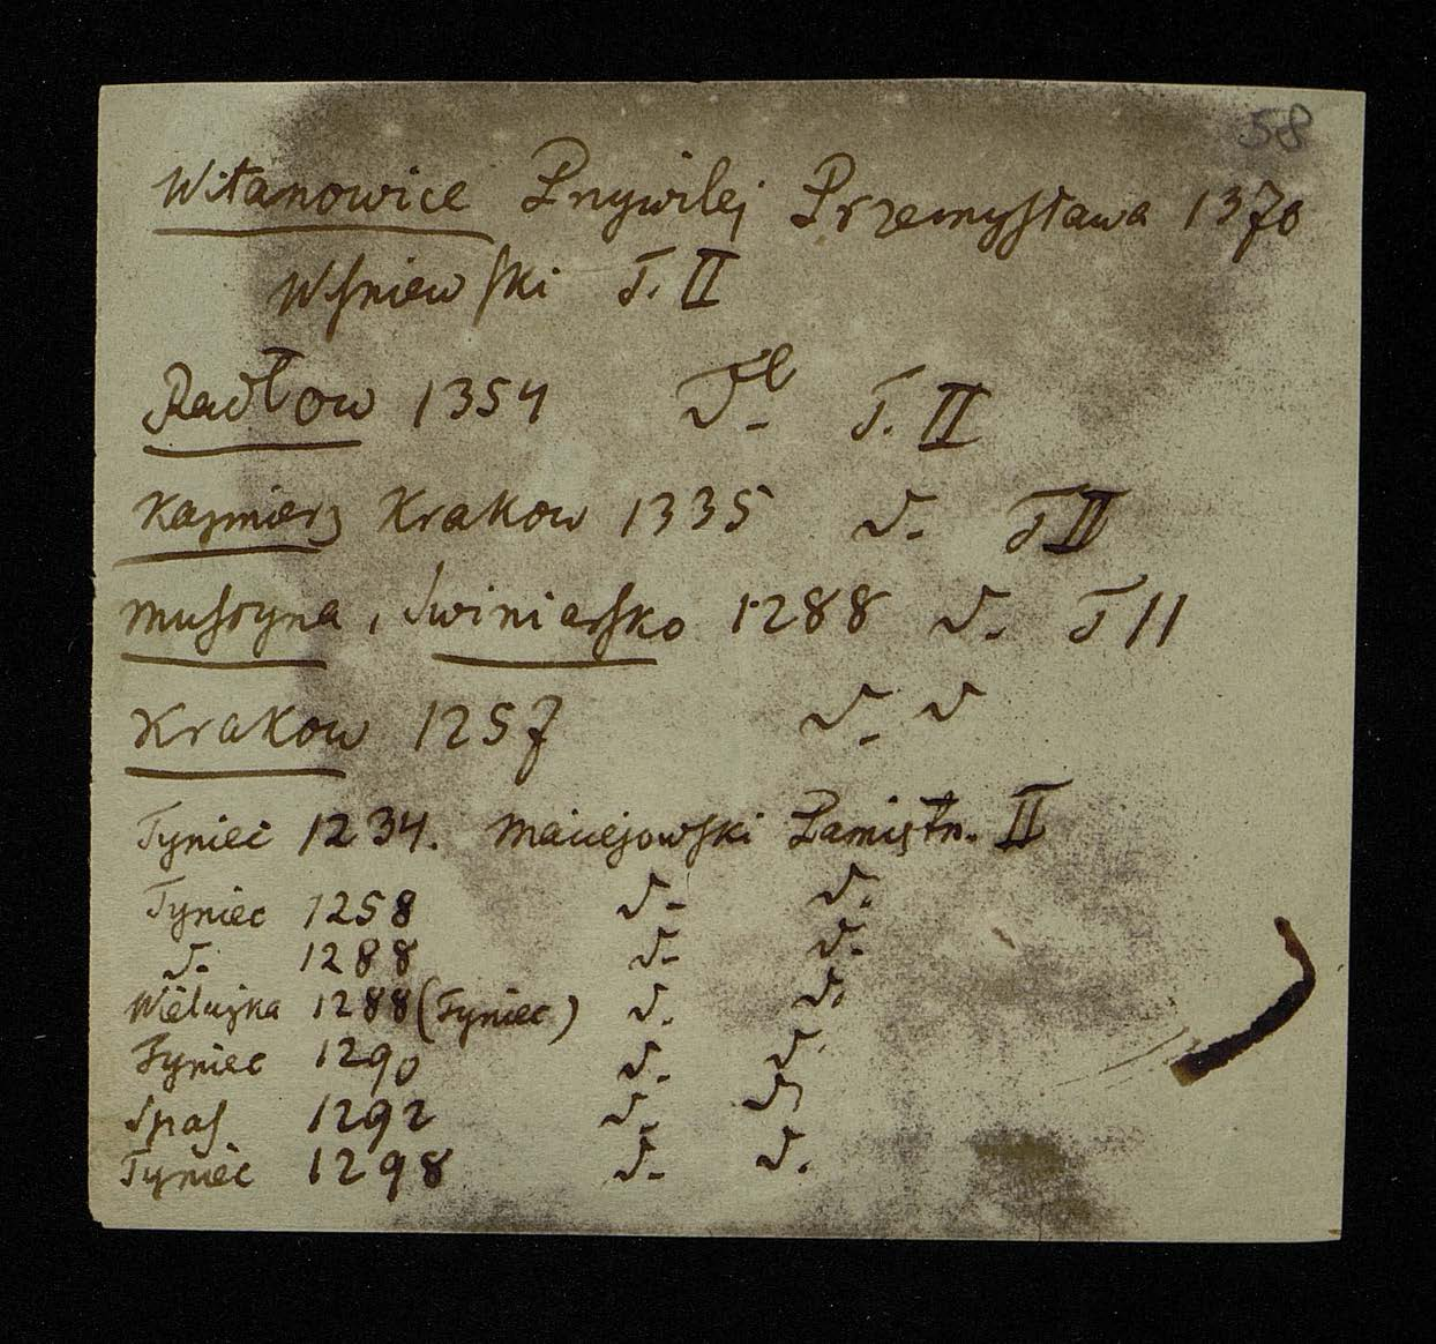 58
Witanowice Przywilej Przemysława 1370
Wiſniewſki T. II
Radłow 1354 T. II
Kazmierz Krakow 1335 d. T II
Muſzyna, Swiniarſko 1288 d. T II
Krakow 1257 d. d
Tyniec 1234. Maciejowſki Pamiętn. II
Tyniec 1258 d. d.
d. 1288 d. d.
1288 (Tyniec) d. d.
Tyniec 1290 d. d.
Spaſ. 1292 d. d.
Tyniec 1298 d. d.